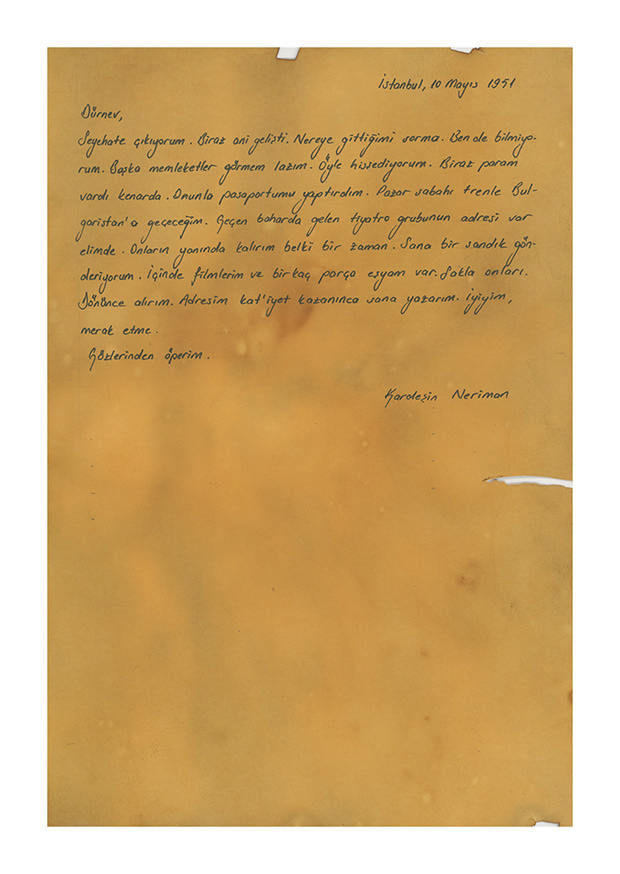 İstanbul, 10 Mayıs 1951
Dürnev,
Seyehate çıkıyorum. Biraz ani gelişti. Nereye gittiğimi sorma. Ben de bilmiyo-
rum. Başka memleketler görmem lazım. Öyle hissediyorum. Biraz param
vardı kenarda. Onunla pasaportumu yaptırdım. Pazar sabahı trenle Bul-
garistan'a geçeceğim. Geçen baharda gelen tiyatro grubunun adresi var
elimde. Onların yanında kalırım belki bir zaman. Sana bir sandık gön-
deriyorum. İçinde filmlerim ve birkaç parça eşyam var. Sakla onları.
Dönünce alırım. Adresim kat'iyet kazanınca sana yazarım. İyiyim,
merak etme.
Gözlerinden öperim.
Kardeşin Neriman